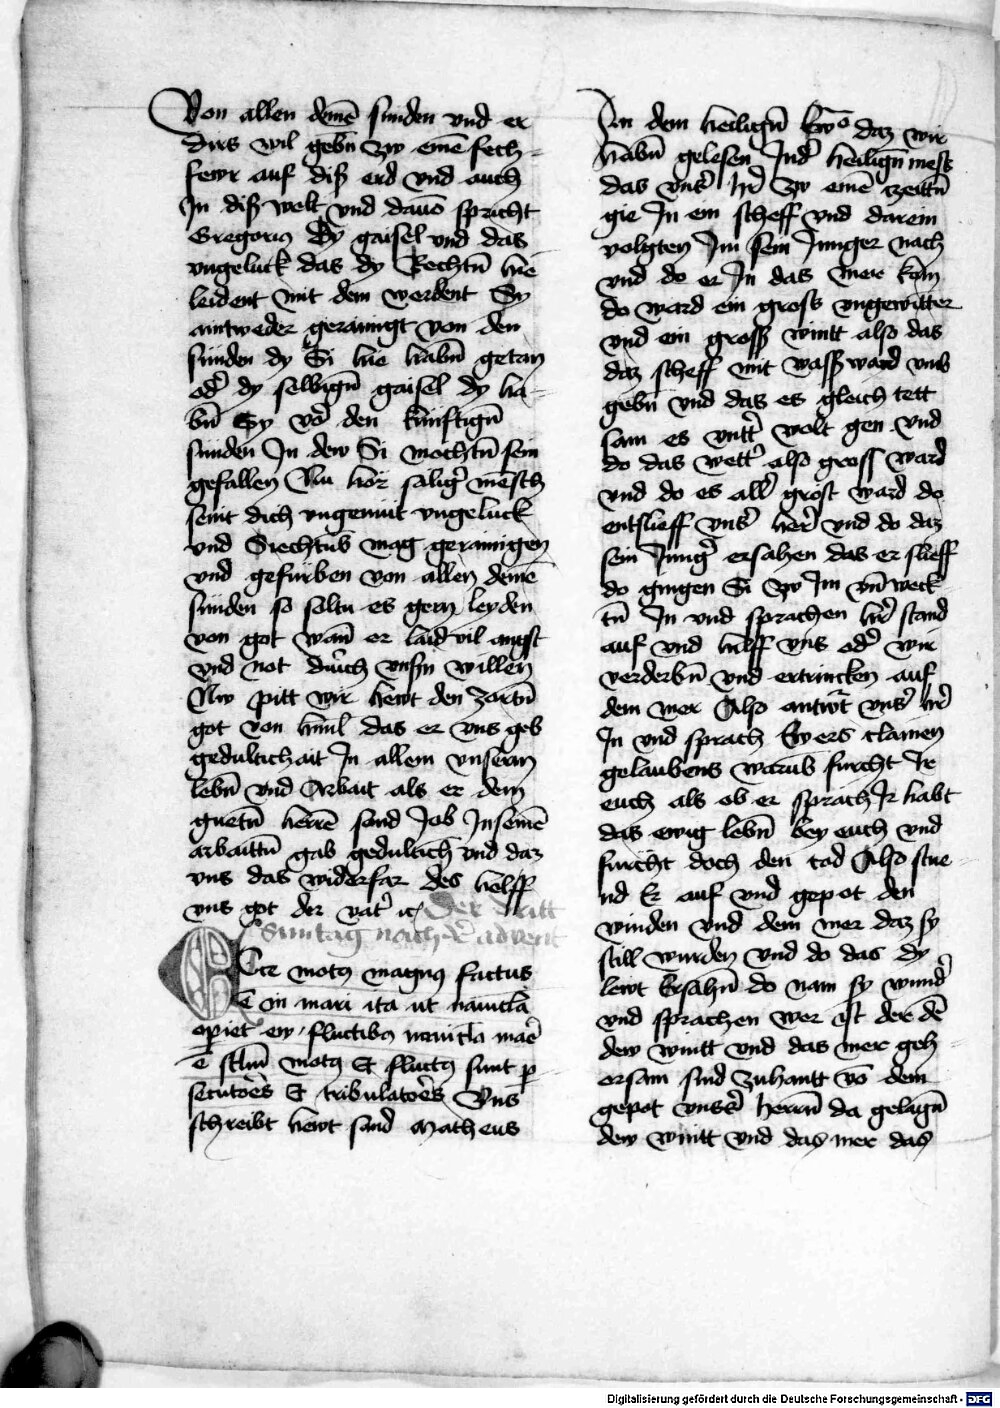 Von allen deinē sunden vnd er
dirs wil gebn̄ zw einē fech-
fewr auf diß erd vnd auch
In diß welt vnd dauō spricht
Gregoriꝰ Dy gaisel vnd das
vngeluck das dy Rechtn̄ hie
leident mit dem werdent Sy
aintweder gerainigt von den
sunden dy Si hie habn̄ getan
odͤ dy selbign̄ gaisel dy ha-
bn̄ Sy vō den kunftign̄
sunden In dew Si mochtn̄ sein
gefallen Nu hör saligͤ mēsch
seint dich vngemut vngeluck
vnd Siechtūb mag gerainigen
vnd gefurben von allen deinē
sunden so saltu es gern leyden
von got wan̄ er laid vil angst
vnd not durch vnsn̄ willen
Nw pitt wir hewt den zartn̄
got von himl das er vns geb
gedultichait In allem vnserm
lebn̄ vnd Arbait als er dem
guetn̄ herrē sand Job In seinē
arbaittn̄ gab gedultich vnd daz
vns das widerfar des helff
vns got der vatͤ ꝛc Der dritt
Suntag nach dͤ advent
ECce motꝰ magnꝰ factus
ē in mari ita ut nauicl̄a
opiret͛ fluctibꝰ nauicl̄a mar̄
ē scl̄m motꝰ Et fluctꝰ sunt ꝑ
secutōes Et tribulatōes Vns
schreibt hewt sand Matheus
In dem heilign̄ Ewō daz wir
habn̄ gelesen Indͤ heilign̄ mess
das vnsͤ hͤr zw einē zeittn̄
gie In ein scheff vnd darein
volgten Im sein Junger nach
vnd do er In das mer kom
do ward ein gross vngewitter
vnd ein gross wintt also das
daz scheff mit wasß ward vmb
gebn̄ vnd das es gleich tett
sam es vnttͤ wolt gen vnd
do das wettͤ also gross ward
vnd do es allͤ gröst ward do
entslieff vnsͤ herͤ vnd do daz
sein Jungͤ ersahen das er slieff
do gingen Si zw Im vn̄ weck
tn̄ In vnd sprachen hͤr stand
auf vnd hilff vns odͤ wir
verderbn̄ vnd ertrincken auf
dem mer Also antwͤt vnsͤ hͤr
In vnd sprach Ey ers clainen
gelaubens warūb furcht Ir
euch als ob er sprach Ir habt
das ewig lebn̄ bey euch vnd
furcht doch den tod Also stue-
nd Er auf vnd gepot den
winden vnd dem mer daz sy
still wurden vnd do das dy
lewt Ersahn̄ do nam sy wundͤ
vnd sprachen wer ist der dē
dew wintt vnd das mer geh-
orsam sind zuhantt vō dem
gepot vnsͤs herrn̄ da gelagn̄
dew wintt vnd das mer das
Digitalisierung gefördert durch die Deutsche Forschungsgemeinschaft - DFG